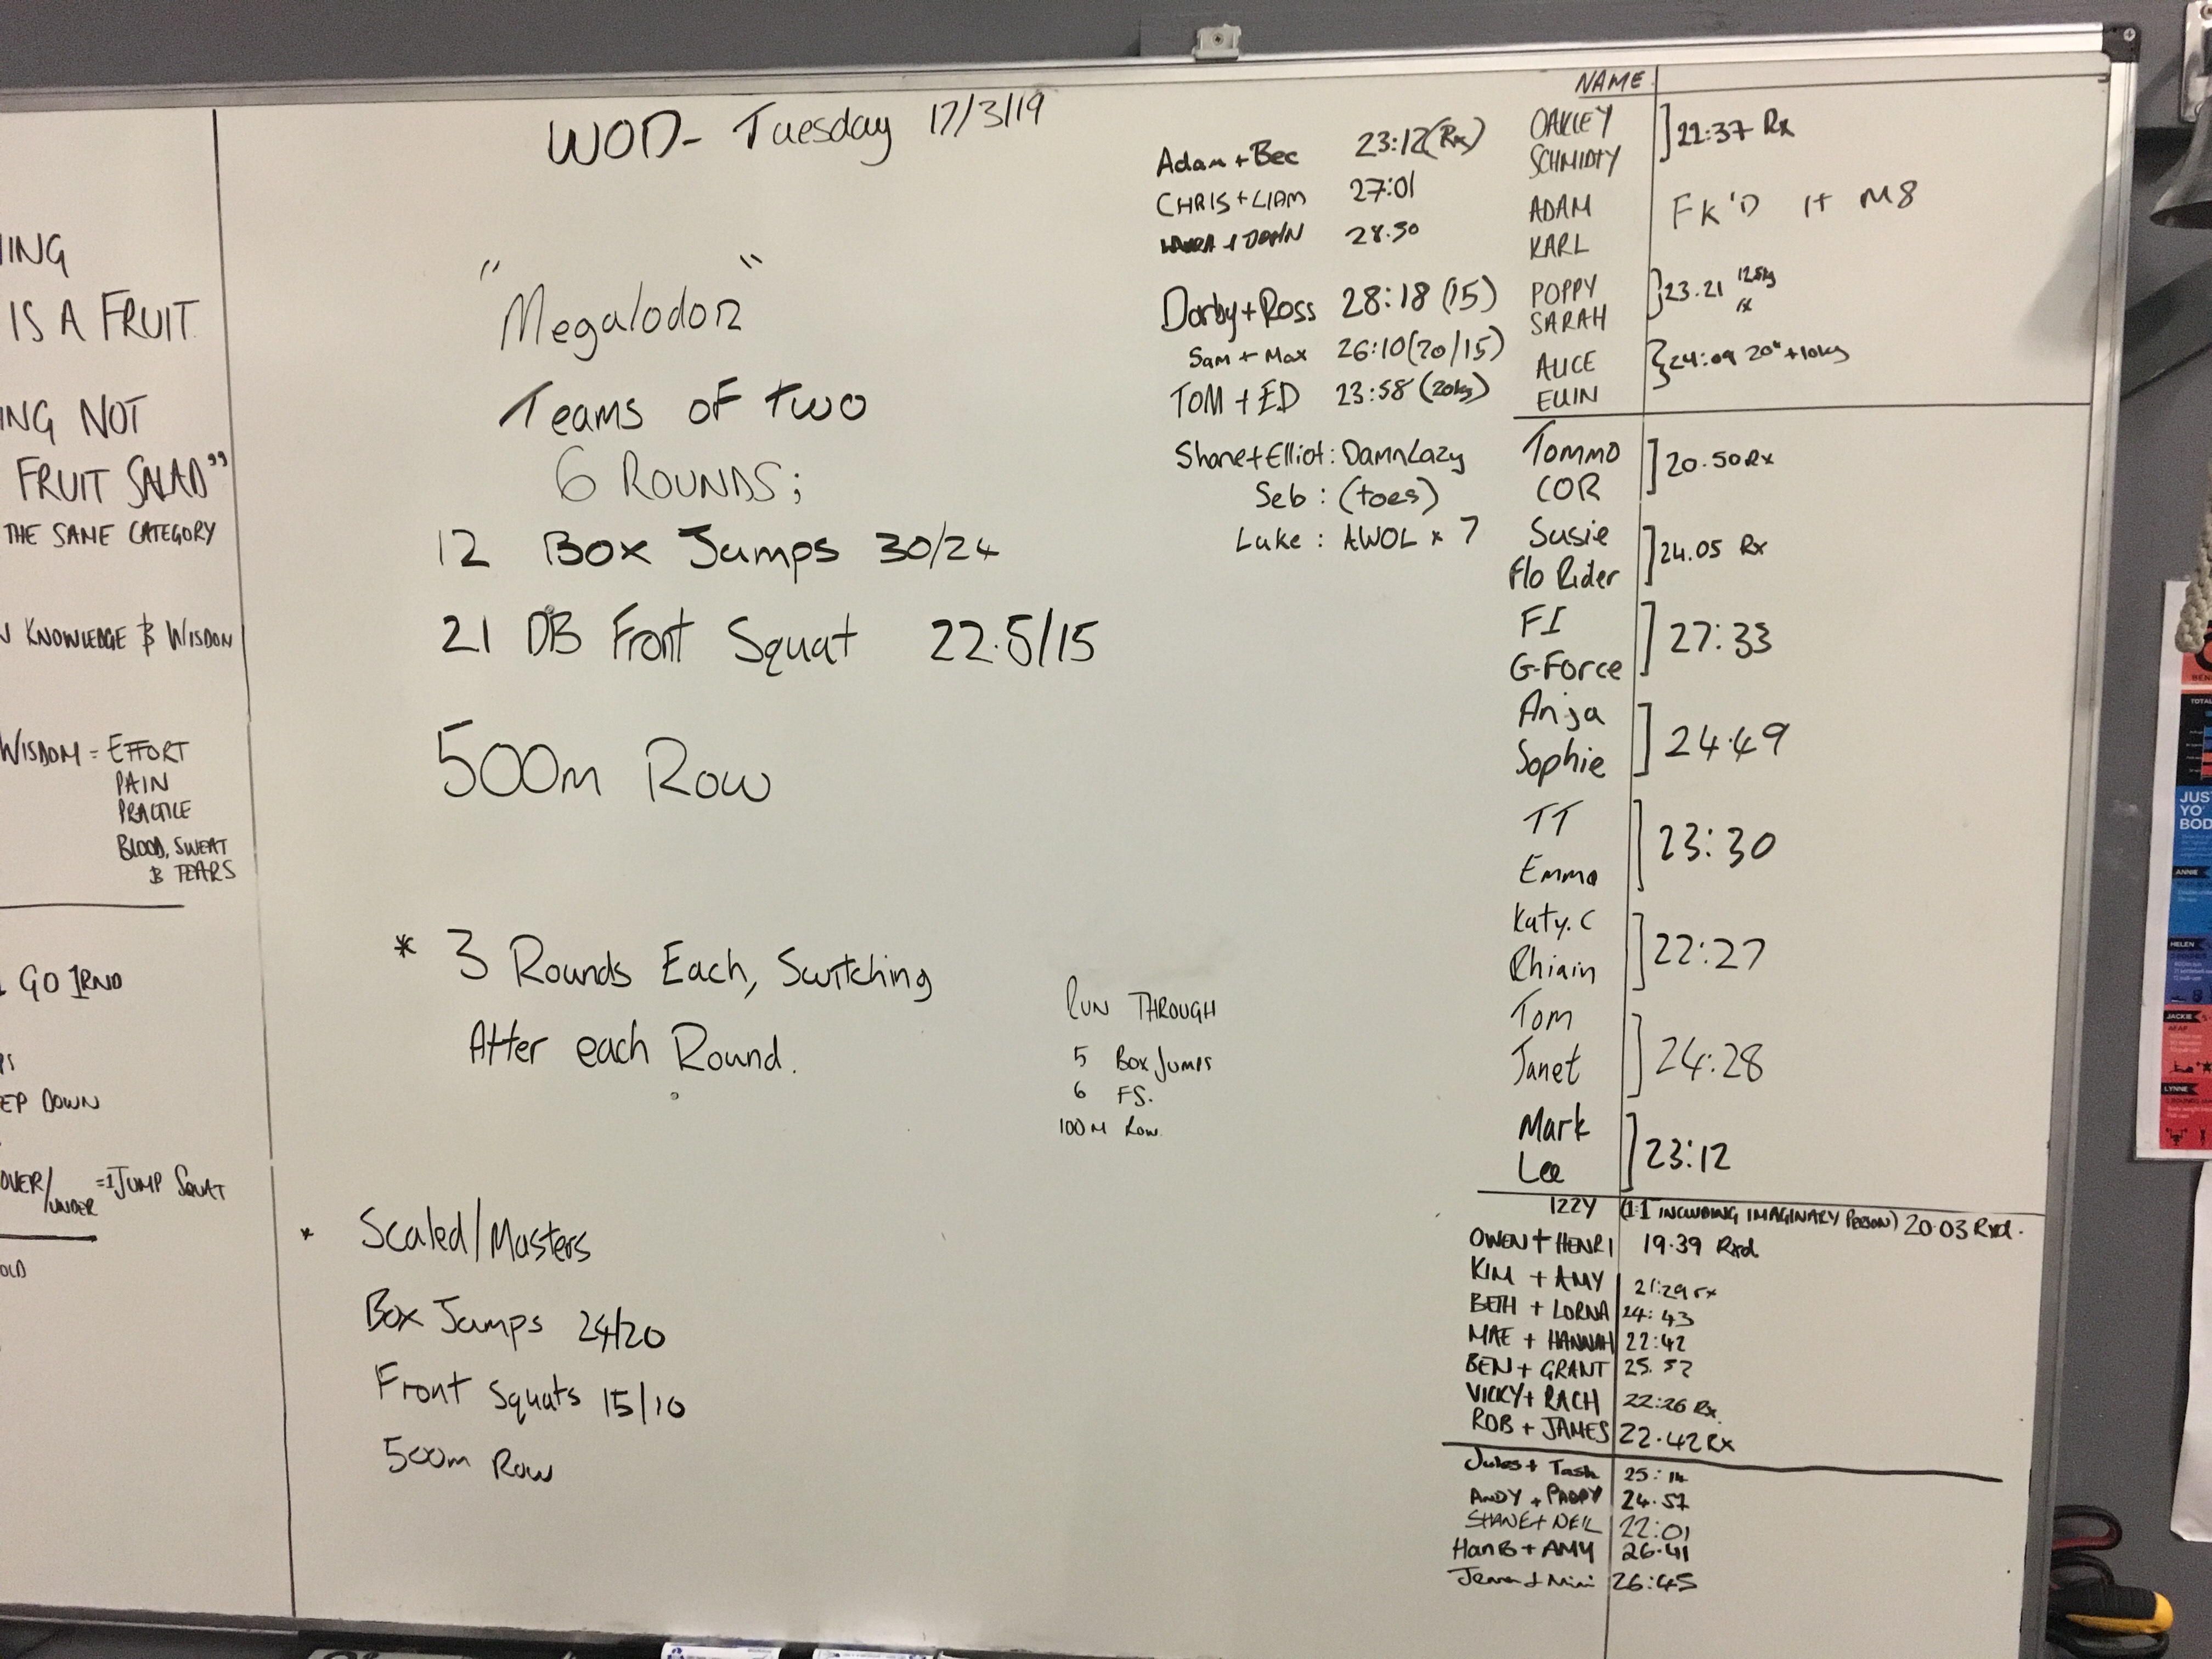 ING
IS A FRUIT
ING NOT
FRUIT SALAD"
THE SAME CATEGORY
KNOWLEDGE & WISDOM
WISDOM = EFFORT
PAIN
PRACTICE
BLOOD, SWEAT
& TEARS
GO 1RND
EP DOWN
OVER/UNDER =1 JUMP SQUAT
OLD
WOD- Tuesday 17/3/19
"Megalodon"
Teams of two
6 ROUNDS;
12 Box Jumps 30/24
21 DB Front Squat 22.5/15
500m Row
* 3 Rounds Each, Switching
After each Round.
RUN THROUGH
5 Box Jumps
6 FS.
100M Row.
* Scaled/Masters
Box Jumps 24/20
Front Squats 15/10
500m Row
Adam + Bec 23:12 (Rx)
CHRIS + LIAM 27:01
28.30
Darby + Ross 28:18 (15)
Sam + Max 26:10 (20/15)
TOM + ED 23:58 (20kg)
Shane + Elliot: Damn Lazy
Seb : (toes)
Luke : AWOL x 7
NAME
OAKLEY
SCHMIDTY ] 22:37 Rx
ADAM
KARL FK'D IT M8
POPPY
SARAH } 23.21 12.5kg rx
ALICE
} 24:09 20" + 10kg
Tommo
COR ] 20.50 Rx
Susie
Flo Rider ] 24.05 Rx
FI
G-Force ] 27:33
Anja
Sophie ] 24.49
TT
Emma ] 23:30
Katy.C
Rhiain ] 22:27
Tom
Janet ] 24:28
Mark
Lee ] 23:12
IZZY (1:1 INCLUDING IMAGINARY PERSON) 20.03 Rxd.
OWEN + HENRI 19.39 Rxd
KIM + AMY 21:29 rx
BETH + LORNA 24:43
MAE + HANNAH 22:42
BEN + GRANT 25.52
VICKY + RACH 22:26 Rx
ROB + JAMES 22.42 Rx
Jules + Tash 25:14
ANDY + PADDY 24.57
SHANE + NEIL 22:01
Han B + AMY 26.41
Jenna + Mini 26:45
JUS
YO
BOD
ANNIE
HELEN
JACKIE
LYNNE
TOTAL